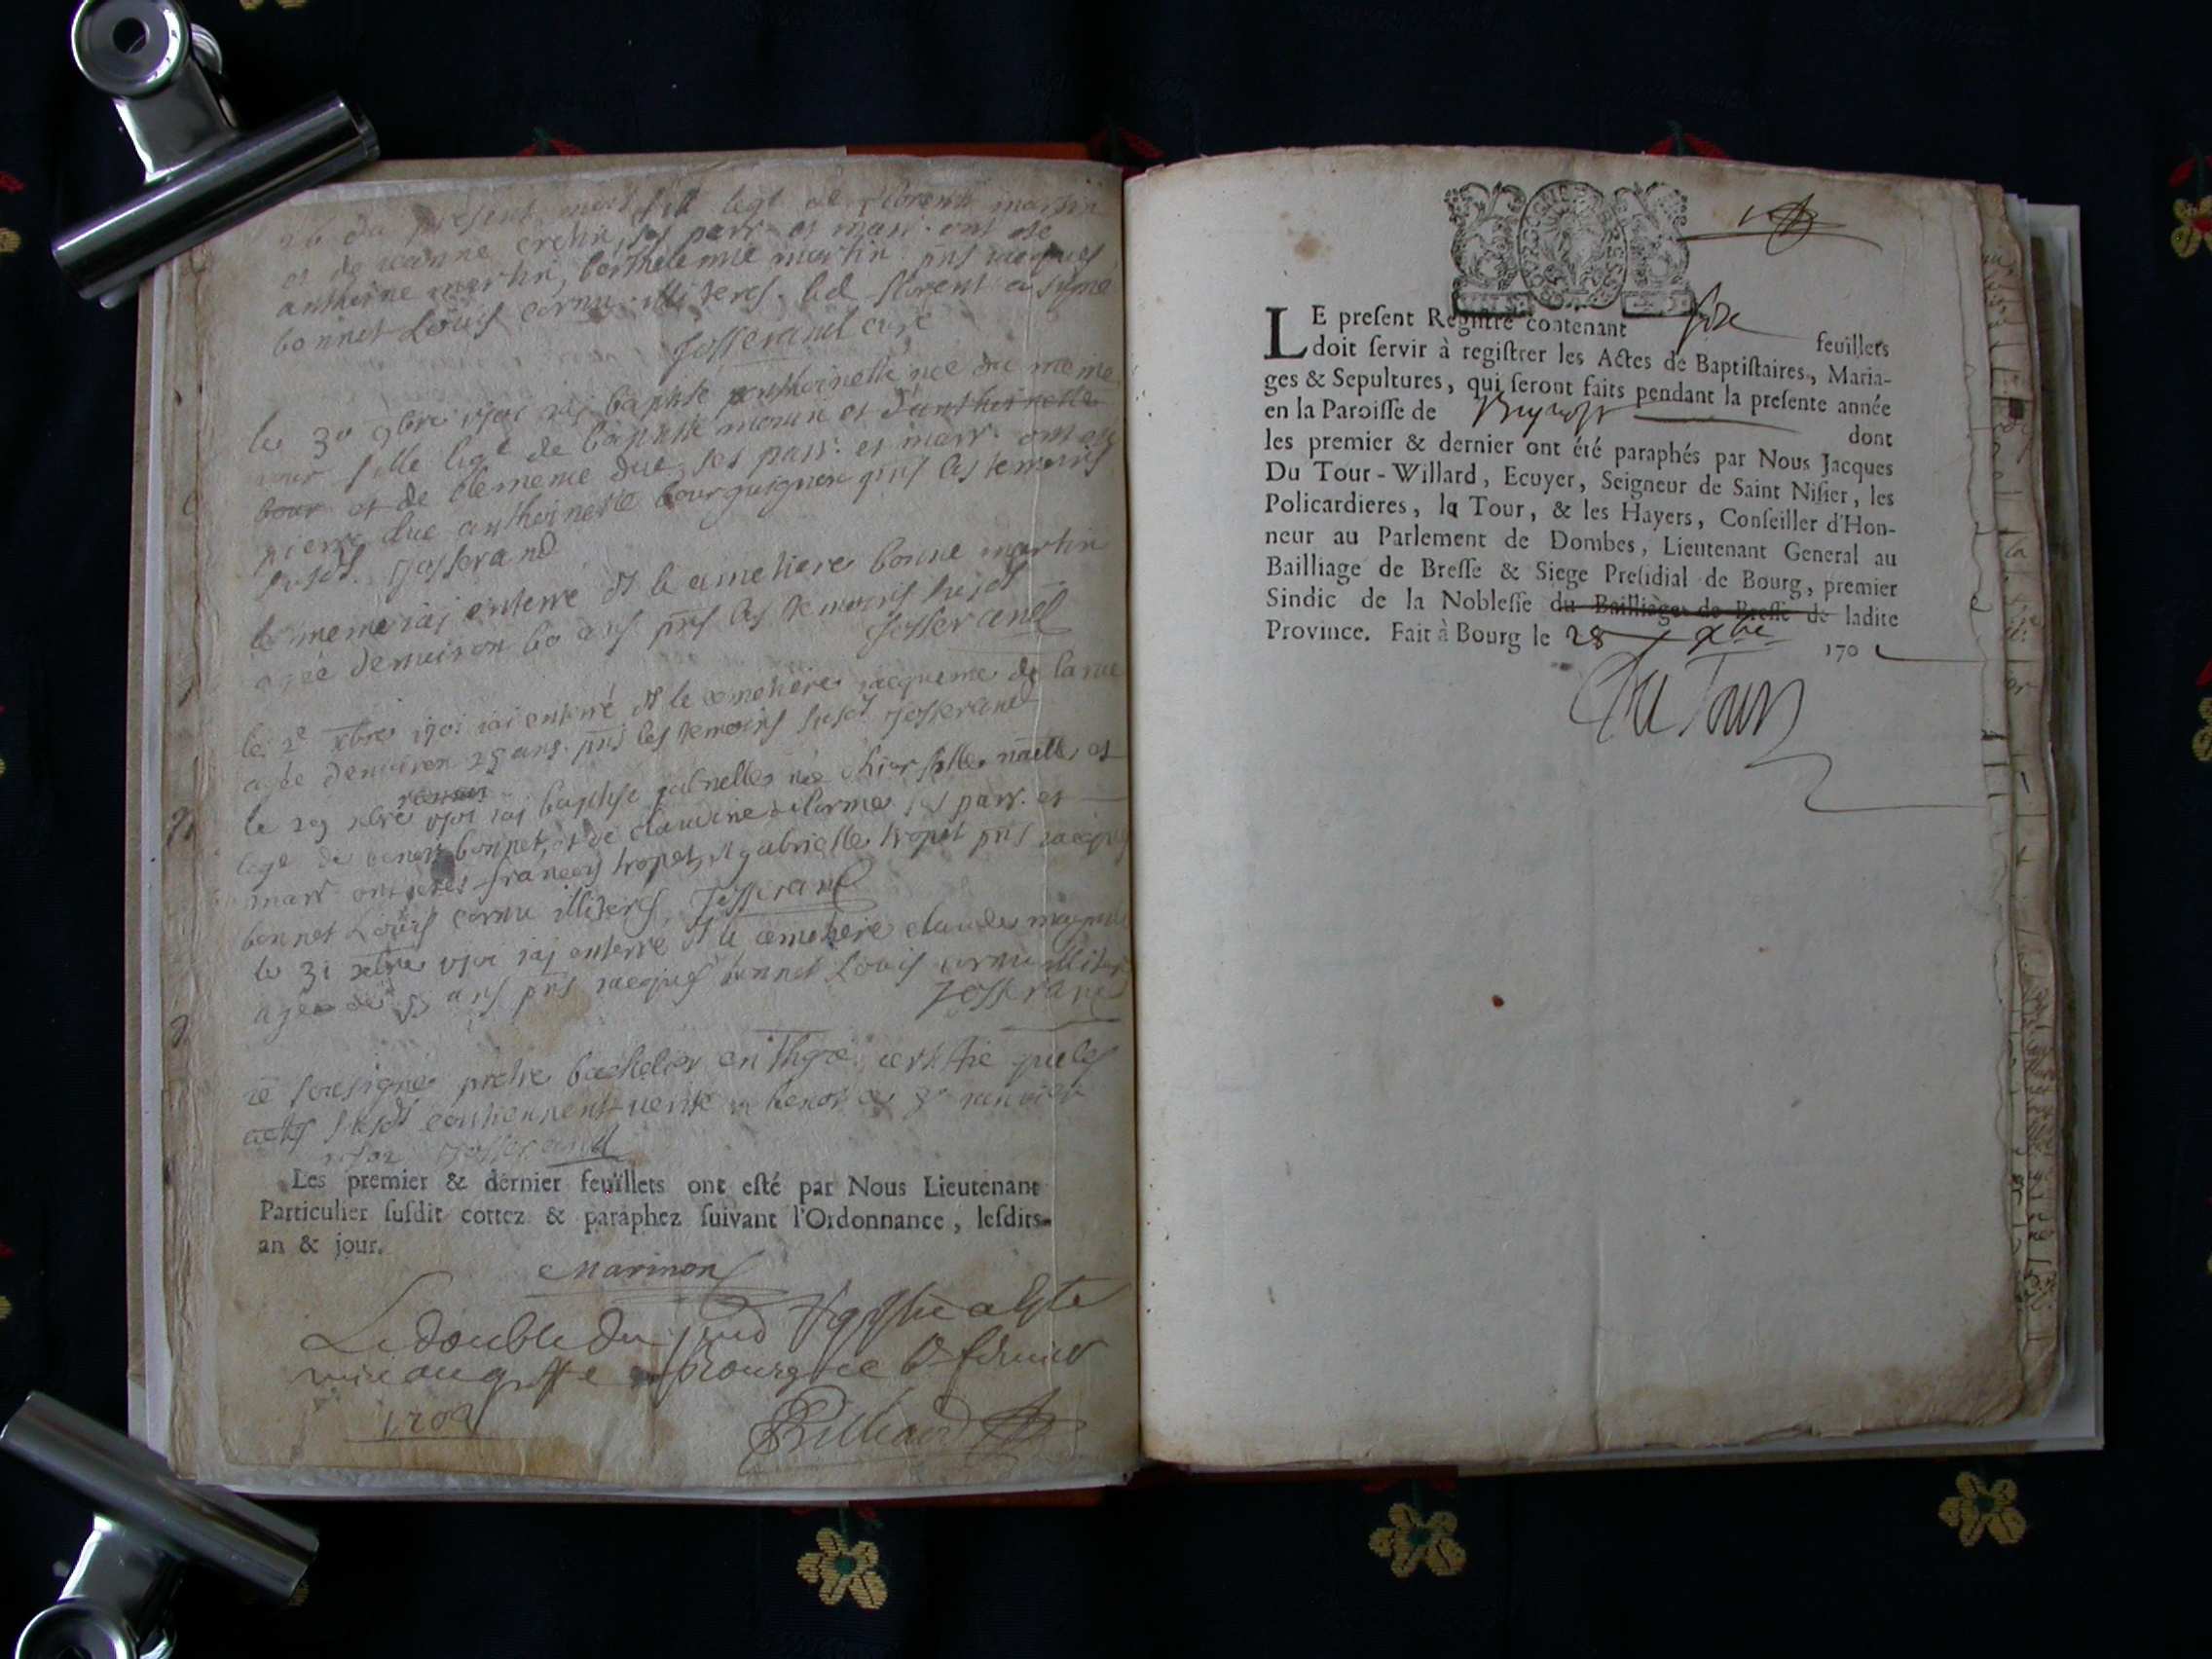 26 du present mois fils legt de florent martin
et de jeanne cretin, ses parr. et marr. ont ete
anthoine martin, barthelemie martin pns jacques
bonnet Louis cornu illiteres. led. florent a signe
Josserand curé
le 30 9bre 1701 iai baptise anthoinette nee du meme
jour fille legt de baptiste morin et d'anthoinette
bour et de clemence due, ses parr. et marr. ont ete
pierre due anthoinette bourguignon pns les temoins
susdt. Josserand
le meme iai enterré dt le cimetiere bonne martin
agée denuiron 60 ans pns les temoins susdt
Josserand
le 2e xbre 1701 iai enterré dt le cemetiere jacqueme de la rue
agée denuiron 25 ans. pns les temoins susdt Josserand
le 29 xbre 1701 iai baptise gabrielle née hier fille natlle et
legt de benoit bonnet, et de claudine delorme ses parr. et
marr ont estes francois tropet, et gabrielle tropet pns jacques
bonnet Louis cornu illiteres, Josserand
le 31 xbre 1701 iai enterré dt le cemetiere claude
agé de 55 ans pns jacques bonnet Louis cornu illiteres
Josserand
ie sousigné pretre bachelier en Thgie certifie que les
actes susdt contiennent verité a ce 3e janvier
1702 Josserand
Les premier & dernier feuïllets ont esté par Nous Lieutenant
Particulier ſuſdit cottez & paraphez ſuivant l'Ordonnance, leſdits
an & jour.
Marinon
Le double du pnd a este
mis au greffe Bourg ce 6e feurier
1702
LE preſent Regiſtre contenant ſize feuillets
doit ſervir à regiſtrer les Actes de Baptiſtaires, Maria-
ges & Sepultures, qui ſeront faits pendant la preſente année
en la Paroiſſe de dont
les premier & dernier ont été paraphés par Nous Jacques
Du Tour-Willard, Ecuyer, Seigneur de Saint Niſier, les
Policardieres, la Tour, & les Hayers, Conſeiller d'Hon-
neur au Parlement de Dombes, Lieutenant General au
Bailliage de Breſſe & Siege Preſidial de Bourg, premier
Sindic de la Nobleſſe du Bailliage de Breſſe de ladite
Province. Fait à Bourg le 28 xbre 170
Du Tour